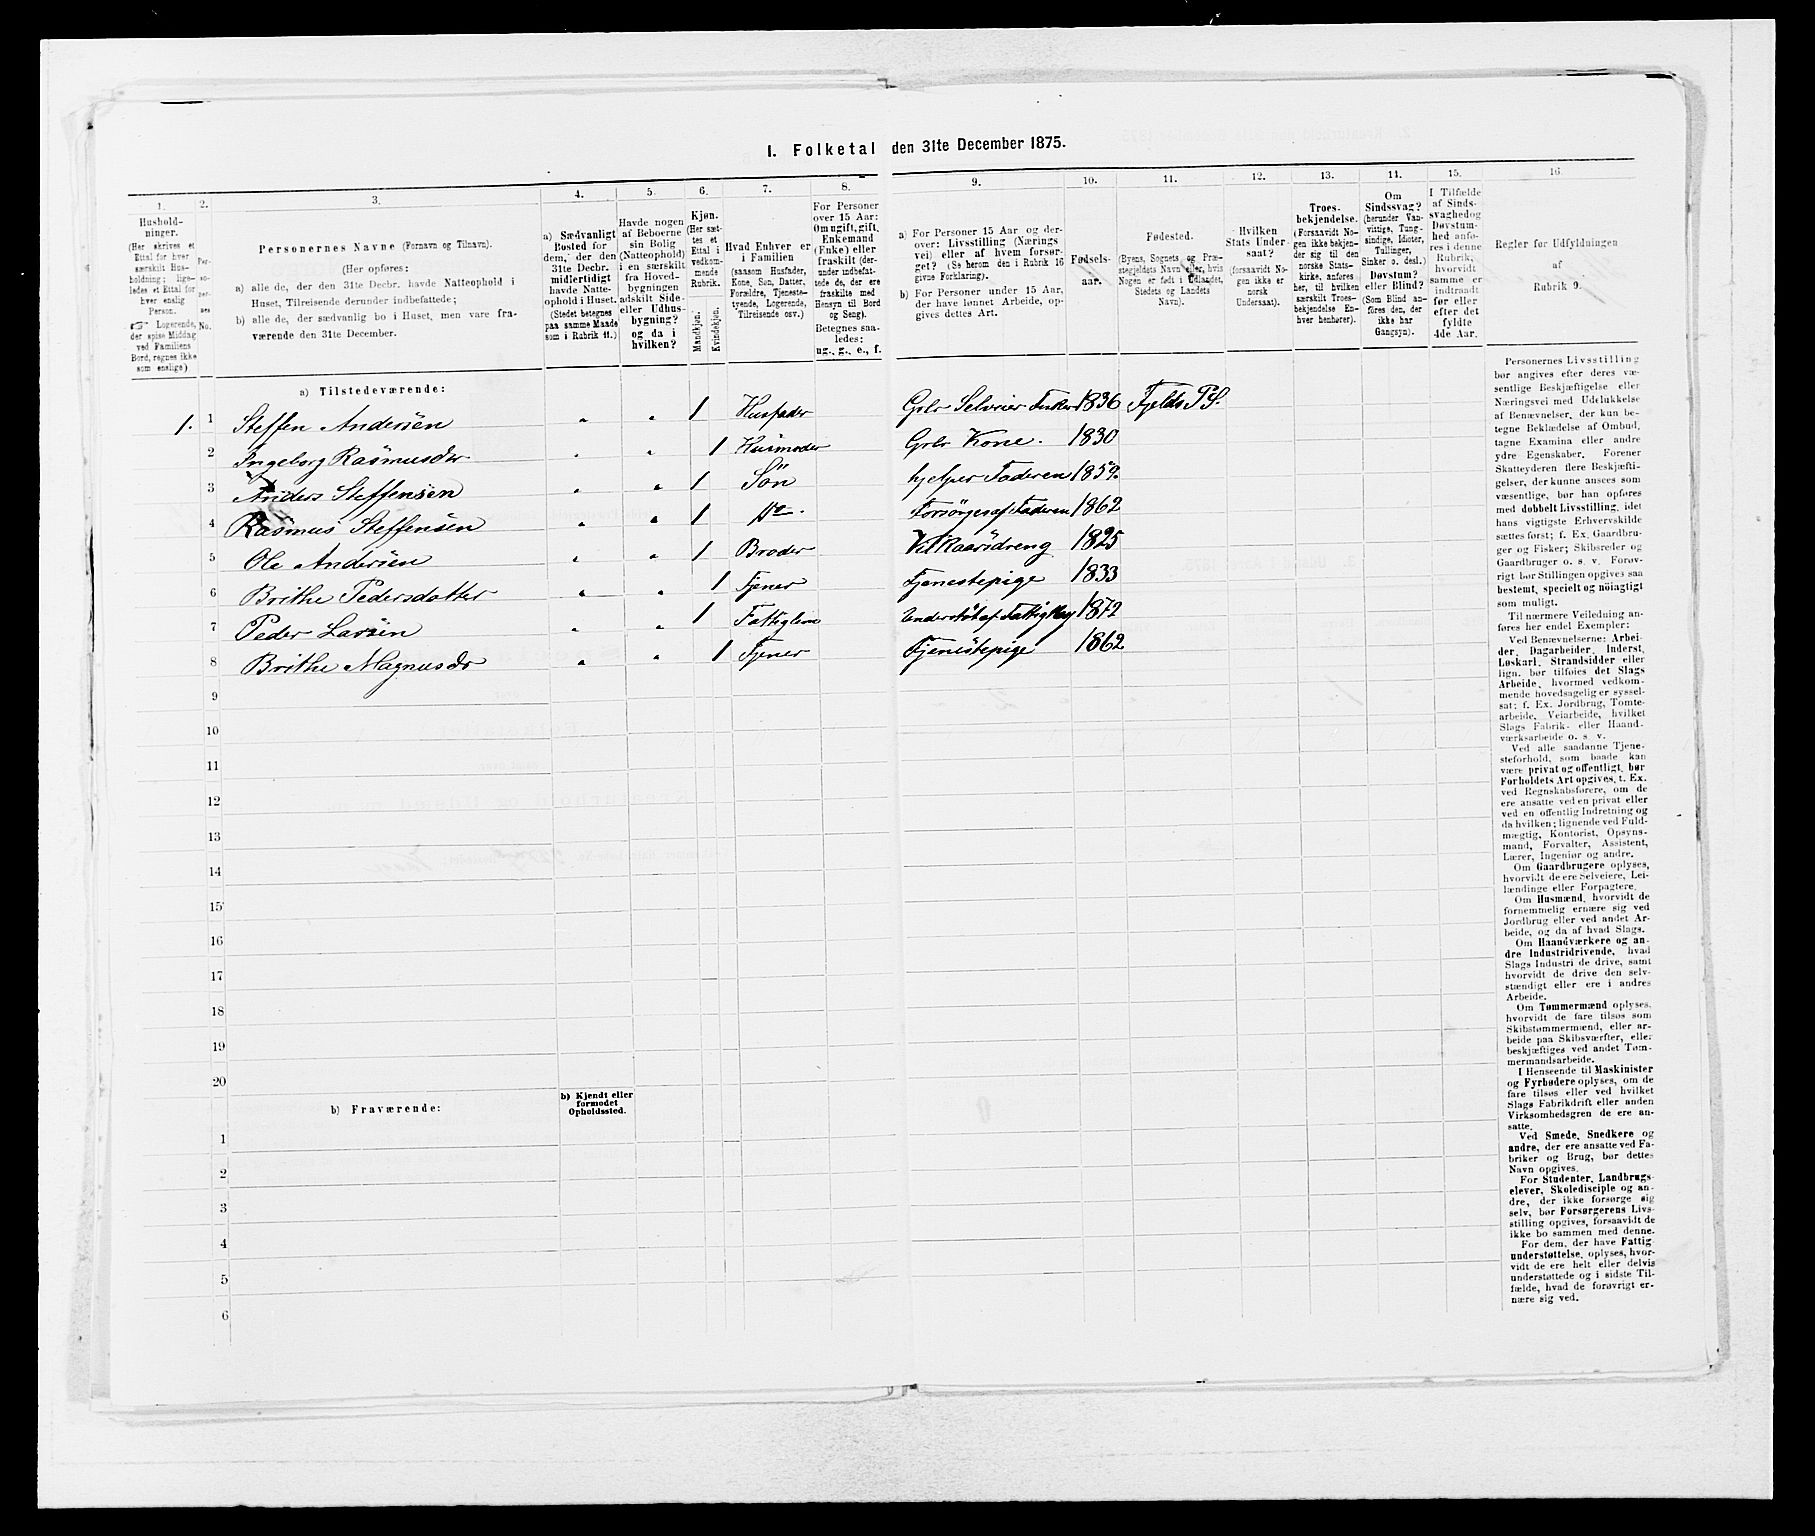 I. Folketal den 31te December 1875.
1. 2. 3. 4. 5. 6. 7. 8. 9. 10. 11. 12. 13. 14. 15. 16.
Hushold-
ninger.
(Her skrives et
Ettal for hver
særskilt Hus-
holdning; lige-
ledes et Ettal for
hver enslig
Person.
Logerende,
der spise Middag
ved Familiens
Bord, regnes ikke
som enslige)
Per-
so-
ner-
nes
No.
Personernes Navne (Fornavn og Tilnavn).
(Her opføres:
a) alle de, der den 31te Decbr. havde Natteophold i
Huset, Tilreisende derunder indbefattede;
b) alle de, der sædvanlig bo i Huset, men vare fra-
værende den 31te December.
a) Sædvanligt
Bosted for
dem, der den
31te Decbr.
midlertidigt
havde Natte-
ophold i Huset.
(Stedet betegnes
paa samme Maade
som i Rubrik 11.)
Havde nogen
af Beboerne
sin Bolig
(Natteophold)
i en særskilt
fra Hoved-
bygningen
adskilt Side-
eller Udhus-
bygning?
og da i
hvilken?
Kjøn.
(Her sæt-
tes et
Ettal i
vedkom-
mende
Rubrik.
Mandkjøn.
Kvindekjøn.
Hvad Enhver er
i Familien
(saasom Husfader,
Kone, Søn, Datter,
Forældre, Tjeneste-
tyende, Logerende,
Tilreisende osv.)
For Personer
over 15 Aar:
Om ugift, gift,
Enkemand
(Enke) eller
fraskilt (der-
under indbefat-
tede de, der ere
fraskilte med
Hensyn til Bord
og Seng).
Betegnes saa-
ledes:
ug., g., e., f.
a) For Personer 15 Aar og der-
over: Livsstilling (Nærings-
vei) eller af hvem forsør-
get? (Se herom den i Rubrik 16
givne Forklaring).
b) For Personer under 15 Aar,
der have lønnet Arbeide, op-
gives dettes Art.
Fødsels-
aar.
Fødested.
(Byens, Sognets og Præ-
stegjeldets Navn eller, hvis
Nogen er født i Udlandet,
Stedets og Landets
Navn).
Hvilken
Stats Under-
saat?
(forsaavidt No-
gen ikke er
norsk
Undersaat).
Troes-
bekjendelse.
(Forsaavidt No-
gen ikke bekjen-
der sig til den
norske Stats-
kirke, anføres
her, til hvilken
særskilt Troes-
bekjendelse En-
hver henhører).
Om
Sindssvag?
(herunder Van-
vittige, Tung-
sindige, Idioter,
Tullinger,
Sinker o. desl.)
Døvstum?
eller Blind?
(Som Blind an-
føres den, der
ikke har
Gangsyn).
I Tilfælde
af Sinds-
svaghed og
Døvstum-
hed anfø-
res i denne
Rubrik,
hvorvidt
samme er
indtraadt
før eller
efter det
fyldte
4de Aar.
Regler for Udfyldningen
af
Rubrik 9.
a) Tilstedeværende:
1. 1 Steffen Andersen " " 1 Husfader Gbr Selveier Fisker 1836 Fjelds Pf.
2 Ingeborg Rasmusdr " " 1 Husmoder Gbr Kone. 1830
3 Anders Steffensen " " 1 Søn hjelper Faderen 1859
4 Rasmus Steffensen " " 1 do Forsörges af Faderen 1862
5 Ole Andersen " " 1 Broder 1825
6 Brithe Pedersdatter " " 1 Tjener Tjenestepige 1833
7 Peder Larsen " " 1 Fattiglem 1872
8 Brithe Magnusdr " " 1 Tjener Tjenestepige 1862
9
10
11
12
13
14
15
16
17
18
19
20
b) Fraværende:
b) Kjendt eller
formodet
Opholdssted.
1
2
3
4
5
6
Personernes Livsstilling
bør angives efter deres væ-
sentlige Beskjæftigelse eller
Næringsvei med Udelukkelse
af Benævnelser, der kun be-
tegne Beklædelse af Ombud,
tagne Examina eller andre
ydre Egenskaber. Forener
Skatteyderen flere Beskjæfti-
gelser, der kunne ansees som
væsentlige, bør han opføres
med dobbelt Livsstilling, idet
hans vigtigste Erhvervskilde
sættes først; f. Ex. Gaardbru-
ger og Fisker; Skibsreder og
Gaardbruger o. s. v. Forøv-
rigt bør Stillingen opgives saa
bestemt, specielt og nöiagtigt
som muligt.
Til nærmere Veiledning an-
føres her endel Exempler:
Ved Benævnelserne: Arbei-
der, Dagarbeider, Inderst,
Løskarl, Strandsidder eller
lign. bør tilføies det Slags
Arbeide, hvormed vedkom-
mende hovedsagelig er syssel-
sat; f. Ex. Jordbrug, Tomte-
arbeide, Veiarbeide, hvilket
Slags Fabrik- eller Haand-
værksarbeide o. s. v.
Ved alle saadanne Tjene-
steforhold, som baade kan
være privat og offentligt, bør
Forholdets Art opgives, t. Ex.
ved Regnskabsførere, om de
ere ansatte ved en privat eller
ved en offentlig Indretning og
da hvilken; lignende ved Fuld-
mægtig, Kontorist, Opsyns-
mand, Forvalter, Assistent,
Lærer, Ingeniør og andre.
Om Gaardbrugere oplyses,
hvorvidt de ere Selveiere, Lei-
lændinge eller Forpagtere.
Om Husmænd, hvorvidt de
fornemmelig ernære sig ved
Jordbrug eller ved andet Ar-
beide, og da af hvad Slags.
Om Haandværkere og an-
dre Industridrivende, hvad
Slags Industri de drive, samt
hvorvidt de drive den selv-
stændigt eller ere i andres
Arbeide.
Om Tømmermænd oplyses,
hvorvidt de fare tilsøs som
Skibstømmermænd, eller ar-
beide paa Skibsværfter, eller
beskjæftiges ved andet Tøm-
mermandsarbeide.
I Henseende til Maskinister
og Fyrbødere oplyses, om de
fare tilsøs eller ved hvilket
Slags Fabrikdrift eller anden
Virksomhedsgren de ere an-
satte.
Ved Smede, Snedkere og
andre, der ere ansatte ved Fa-
briker og Brug, bør dettes
Navn opgives.
For Studenter, Landbrugs-
elever, Skoledisciple og an-
dre, der ikke forsørge sig
selv, bør Forsørgerens Livs-
stilling opgives, forsaavidt de
ikke bo sammen med denne.
For dem, der have Fattig-
understøttelse, oplyses, hvor-
vidt de ere helt eller delvis
understøttede og i sidste Til-
fælde, hvad de forøvrigt er-
nære sig ved.